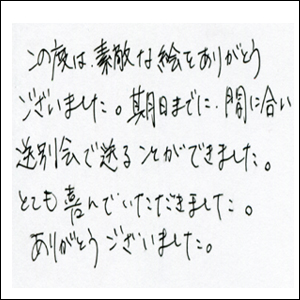 この度は、素敵な絵をありがとう
ございました。期日までに、間に合い
送別会で送ることができました。
とても喜んでいただきました。
ありがとうございました。